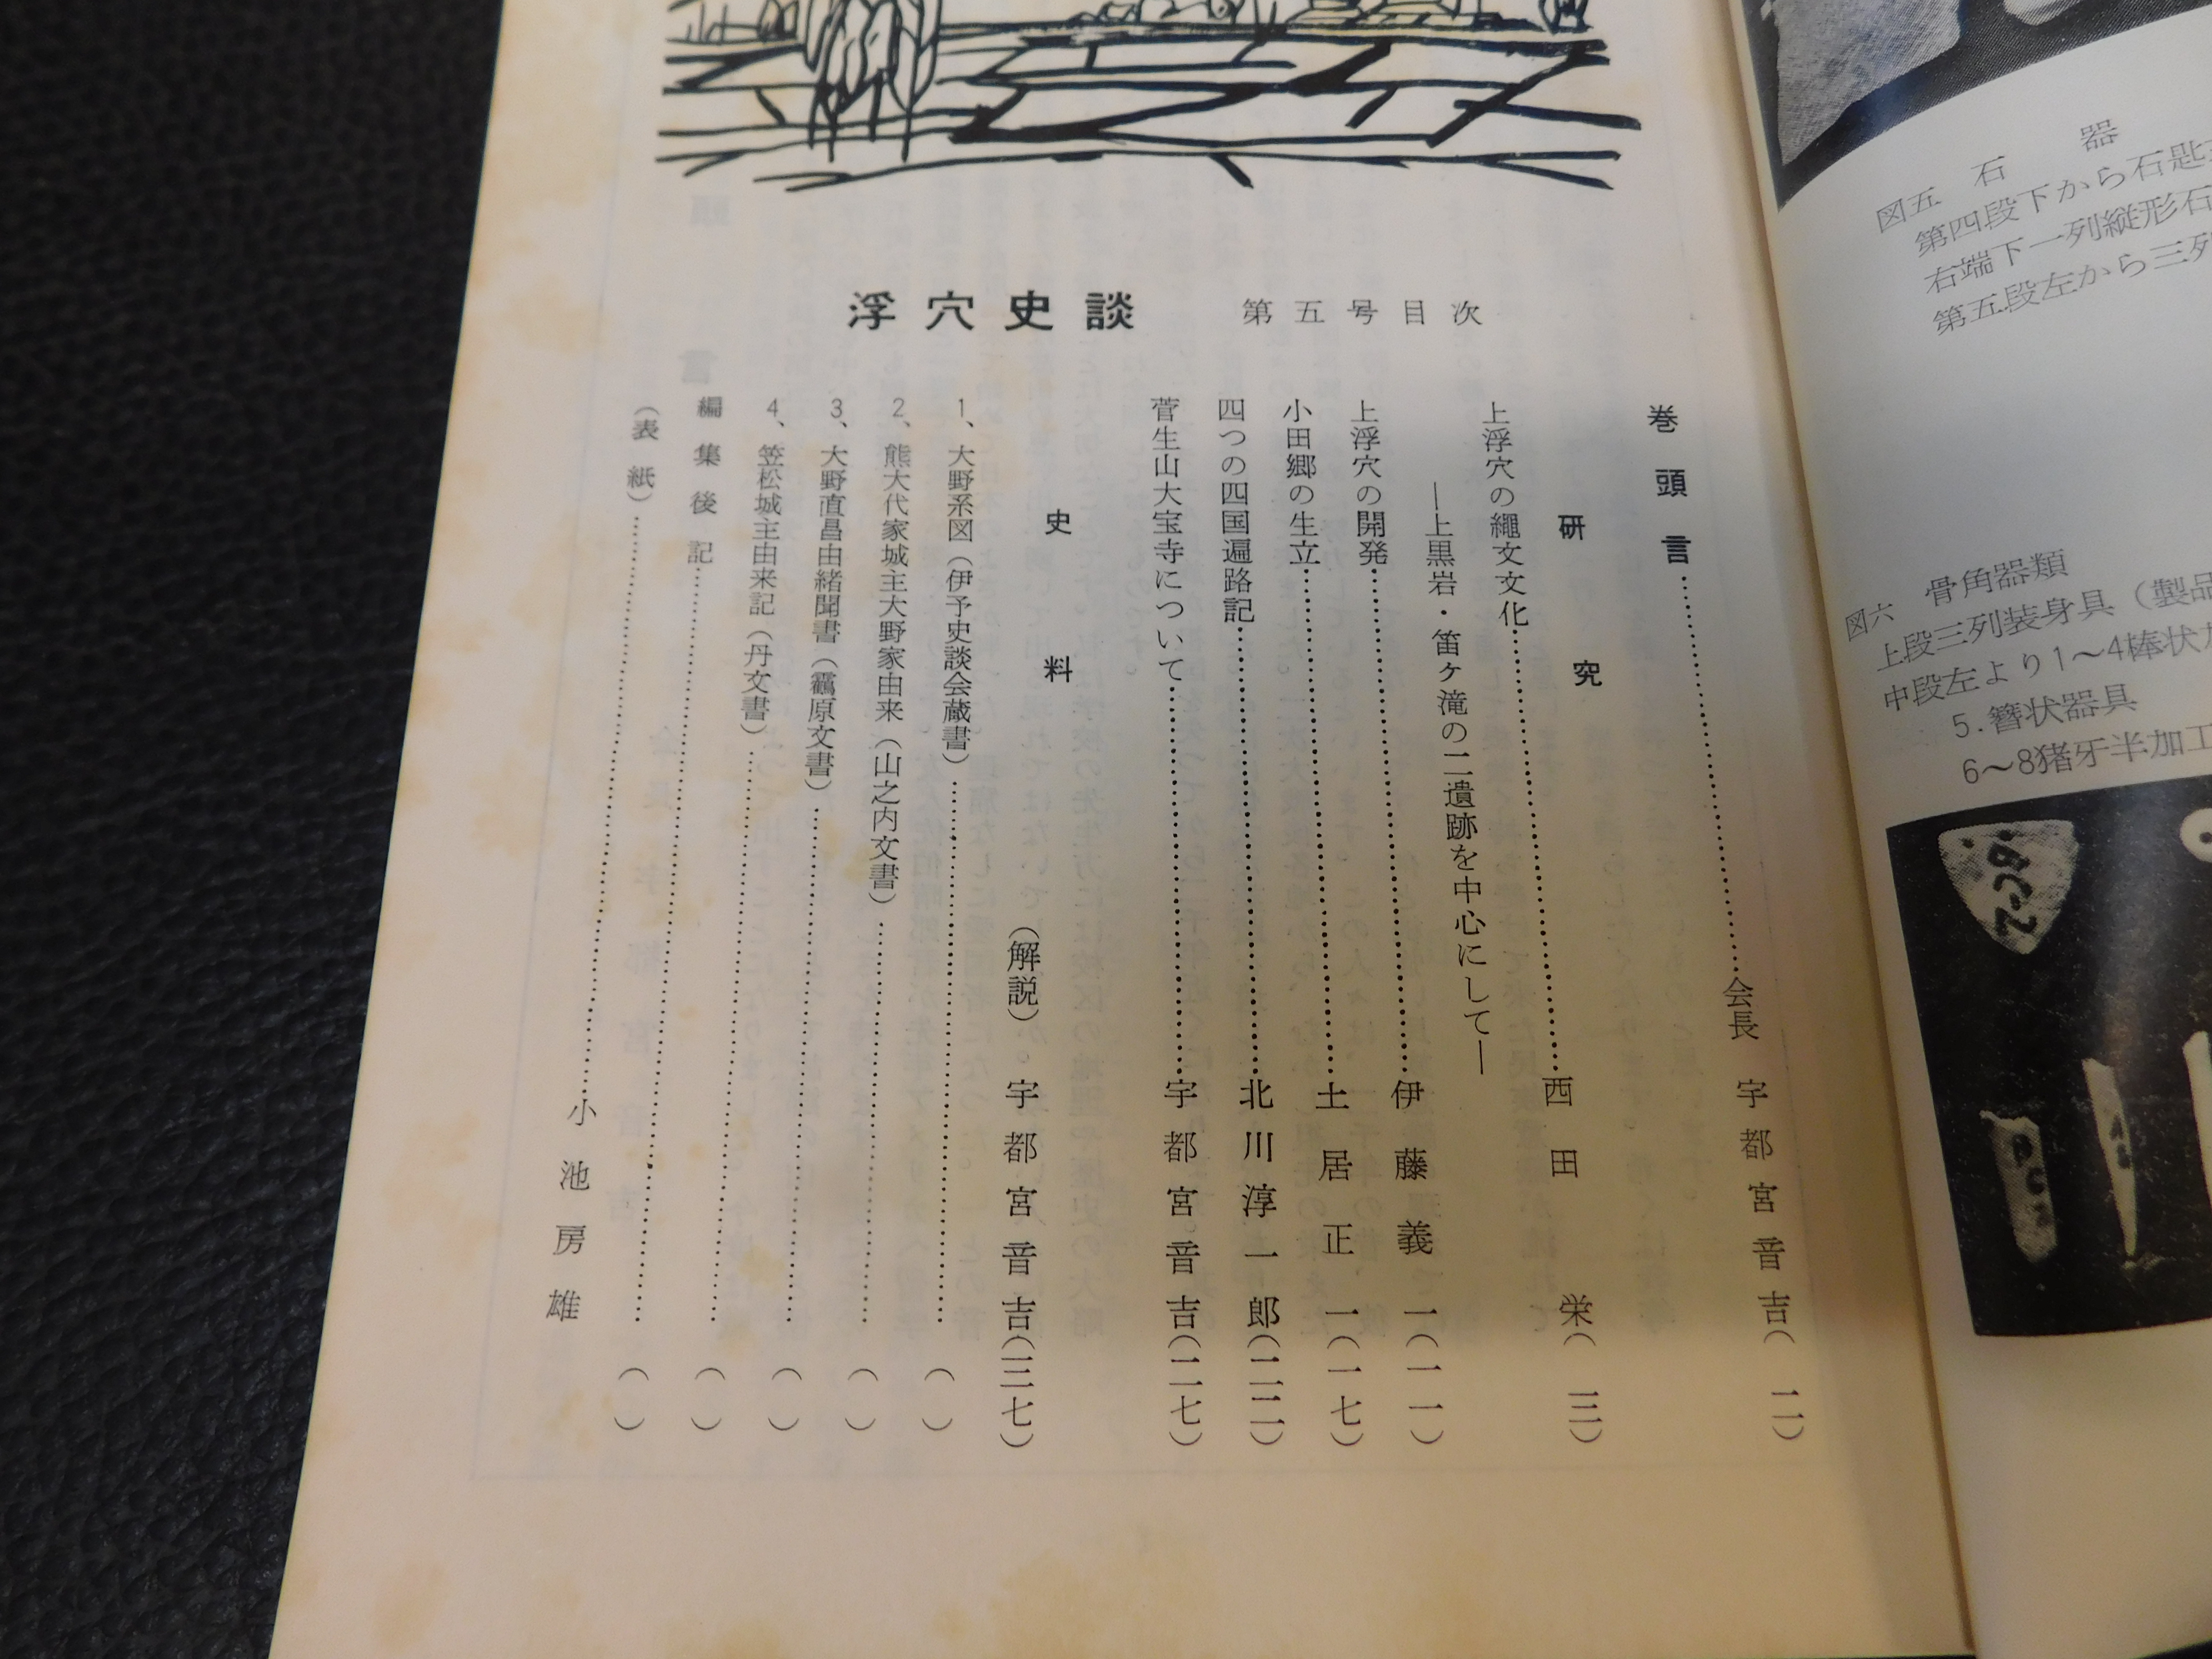 浮穴史談 第五号目次
巻頭言……………会長 宇都宮音吉（一）
研究
上浮穴の繩文文化……………西田栄（三）
―上黒岩・笛ケ滝の二遺跡を中心にして―
上浮穴の開発……………伊藤義一（一一）
小田郷の生立……………土居正一（一七）
四つの四国遍路記……………北川淳一郎（二二）
菅生山大宝寺について……………宇都宮音吉（二七）
史料
（解説）。宇都宮音吉（三七）
1、大野系図（伊予史談会蔵書）……………（ ）
2、熊大代家城主大野家由来（山之内文書）……………（ ）
3、大野直昌由緒聞書（靍原文書）……………（ ）
4、笠松城主由来記（丹文書）……………（ ）
編集後記……………（ ）
（表紙）……………小池房雄
図五 石器
第四段下から石匙
右端下一列縦形石
第五段左から三列
図六 骨角器類
上段三列装身具（製品
中段左より1～4棒状
5.簪状器具
6～8猪牙半加工